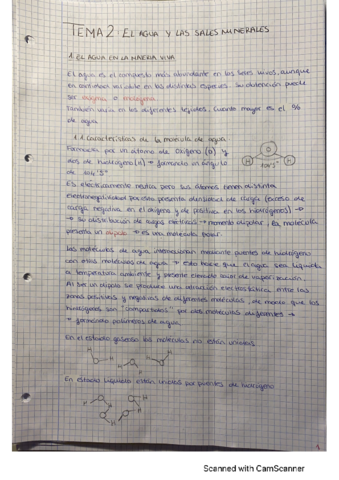 TEMA 2: EL AGUA Y LAS SALES MINERALES
1. EL AGUA EN LA MATERIA VIVA
El agua es el compuesto más abundante en los seres vivos, aunque
en cantidades variable en las distintas especies. Su obtención puede
ser exógena o endógena.
También varía en los diferentes tejidos. Cuanto mayor es el %
de agua
1.1 Características de la molécula de agua
Formada por un átomo de Oxígeno (O) y
dos de hidrógeno (H) → formando un ángulo
de 104'5º
O
H H
104'5º
Es eléctricamente neutra pero sus átomos tienen distinta
electronegatividad por esto presenta densidad de carga (exceso de
carga negativa en el oxígeno y de positiva en los hidrógenos) →
→ su distribución de cargas eléctricas → momento dipolar. La molécula
presenta un dipolo → es una molécula polar.
Las moléculas de agua interaccionan mediante puentes de hidrógeno
con otras moléculas de agua → Esto hace que el agua sea líquida
a temperatura ambiente y presente elevada tensión superficial.
Al ser un dipolo se produce una atracción electrostática entre las
zonas positivas y negativas de diferentes moléculas, de modo que los
hidrógenos son "compartidos" por dos moléculas diferentes →
→ formando polímeros de agua.
En el estado gaseoso las moléculas no están unidas
En estado líquido están unidas por puentes de hidrógeno
1
Scanned with CamScanner